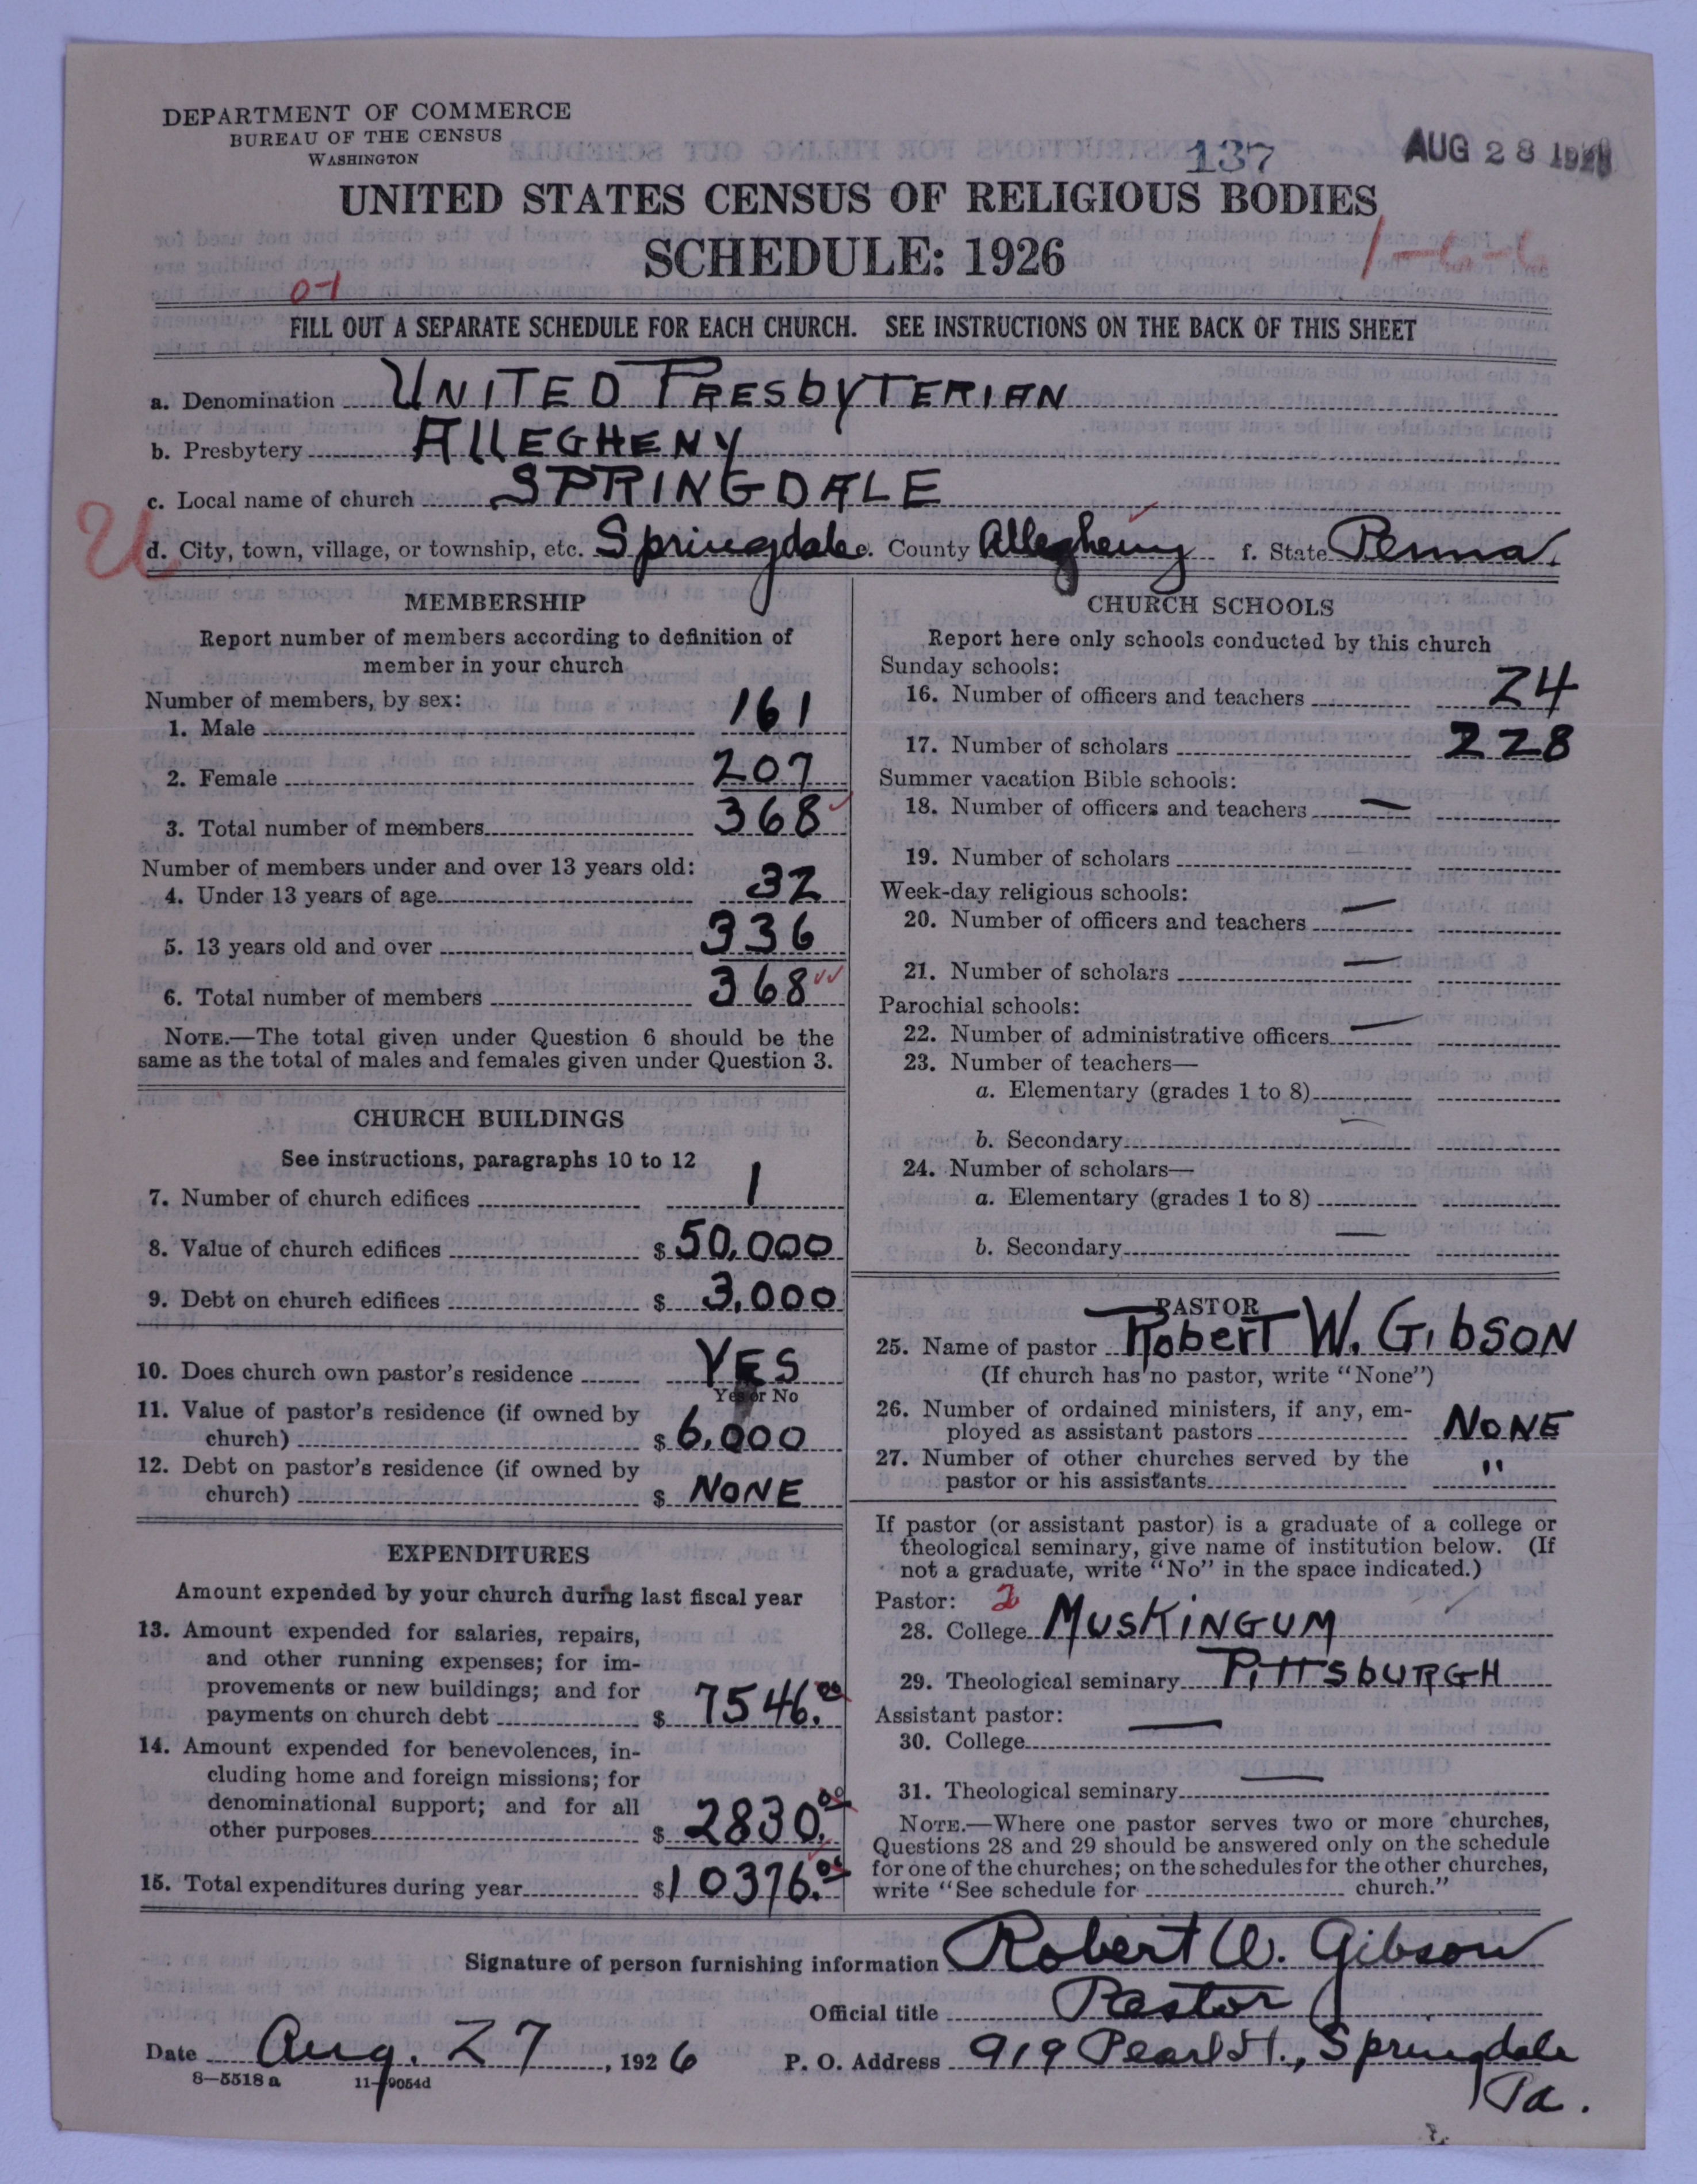 DEPARTMENT OF COMMERCE
BUREAU OF THE CENSUS
WASHINGTON
137
AUG 28 1926
UNITED STATES CENSUS OF RELIGIOUS BODIES
SCHEDULE: 1926
1-6-6
0-1
FILL OUT A SEPARATE SCHEDULE FOR EACH CHURCH. SEE INSTRUCTIONS ON THE BACK OF THIS SHEET
a. Denomination UNITED PRESbyTERIAN
b. Presbytery AllEGHENY
c. Local name of church SPRINGDALE
U
d. City, town, village, or township, etc. Springdale e. County Allegheny f. State Penna.
MEMBERSHIP
Report number of members according to definition of
member in your church
Number of members, by sex:
1. Male 161
2. Female 207
3. Total number of members 368
Number of members under and over 13 years old:
4. Under 13 years of age 32
5. 13 years old and over 336
6. Total number of members 368
NOTE.—The total given under Question 6 should be the
same as the total of males and females given under Question 3.
CHURCH BUILDINGS
See instructions, paragraphs 10 to 12
7. Number of church edifices 1
8. Value of church edifices $ 50,000
9. Debt on church edifices $ 3,000
10. Does church own pastor's residence YES
Yes or No
11. Value of pastor's residence (if owned by
church) $ 6,000
12. Debt on pastor's residence (if owned by
church) $ NONE
EXPENDITURES
Amount expended by your church during last fiscal year
13. Amount expended for salaries, repairs,
and other running expenses; for im-
provements or new buildings; and for
payments on church debt $ 7546.00
14. Amount expended for benevolences, in-
cluding home and foreign missions; for
denominational support; and for all
other purposes $ 2830.00
15. Total expenditures during year $ 10376.00
CHURCH SCHOOLS
Report here only schools conducted by this church
Sunday schools:
16. Number of officers and teachers 24
17. Number of scholars 228
Summer vacation Bible schools:
18. Number of officers and teachers —
19. Number of scholars —
Week-day religious schools:
20. Number of officers and teachers —
21. Number of scholars —
Parochial schools:
22. Number of administrative officers —
23. Number of teachers—
a. Elementary (grades 1 to 8)
b. Secondary —
24. Number of scholars—
a. Elementary (grades 1 to 8)
b. Secondary —
PASTOR
25. Name of pastor RobERT W. GIbSON
(If church has no pastor, write "None")
26. Number of ordained ministers, if any, em-
ployed as assistant pastors NONE
27. Number of other churches served by the
pastor or his assistants "
If pastor (or assistant pastor) is a graduate of a college or
theological seminary, give name of institution below. (If
not a graduate, write "No" in the space indicated.)
Pastor: 2
28. College MUSKINGUM
29. Theological seminary PITTSbURGH
Assistant pastor:
30. College —
31. Theological seminary —
NOTE.—Where one pastor serves two or more churches,
Questions 28 and 29 should be answered only on the schedule
for one of the churches; on the schedules for the other churches,
write "See schedule for church."
Signature of person furnishing information Robert W. Gibson
Official title Pastor
Date Aug. 27, 1926 P. O. Address 919 Pearl St., Springdale
Pa.
8—5518a 11—9054d